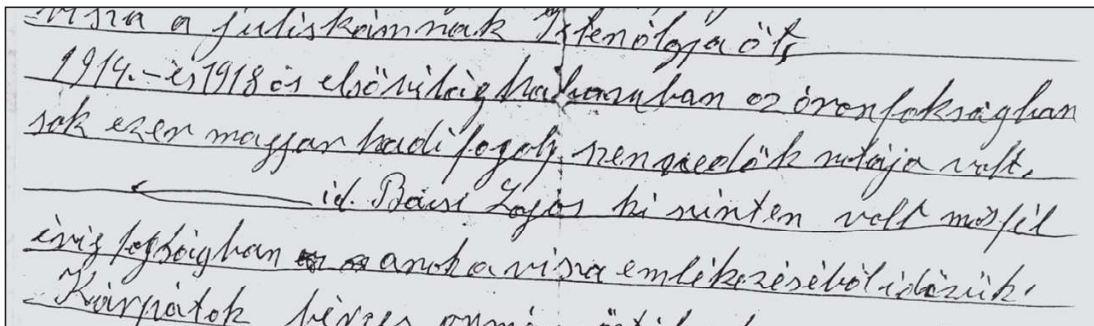 visza a juliskámnak Istenólgja öt,
1914.-és 1918 ós elsővilág haborúban oz óronfokságban
sok ezer magyar hadifogoly szenvedők nótája volt.
id. Bácsi Lajos ki sinten volt másfil
évig fogságban anok a visza emlékezéséből idézük.
Kárpátok bérces